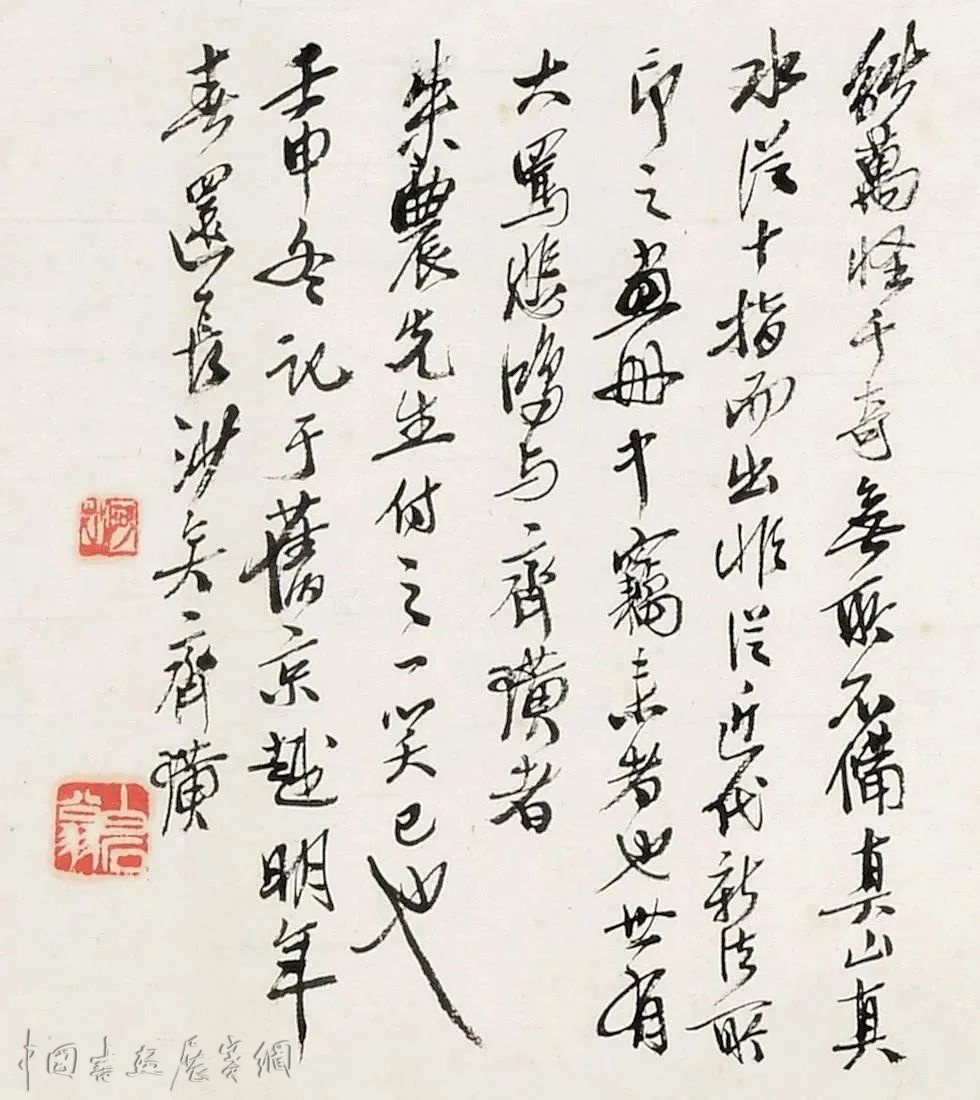 萬怪千奇無所不備真山真
水從十指而出非從近代新法所
印之畫冊中竊來者也世有
大罵悲鴻與齊璜者
朱農先生付之一笑已也
壬申冬記于舊京越明年
春還長沙矣齊璜
白石翁
中國書畫展賽網